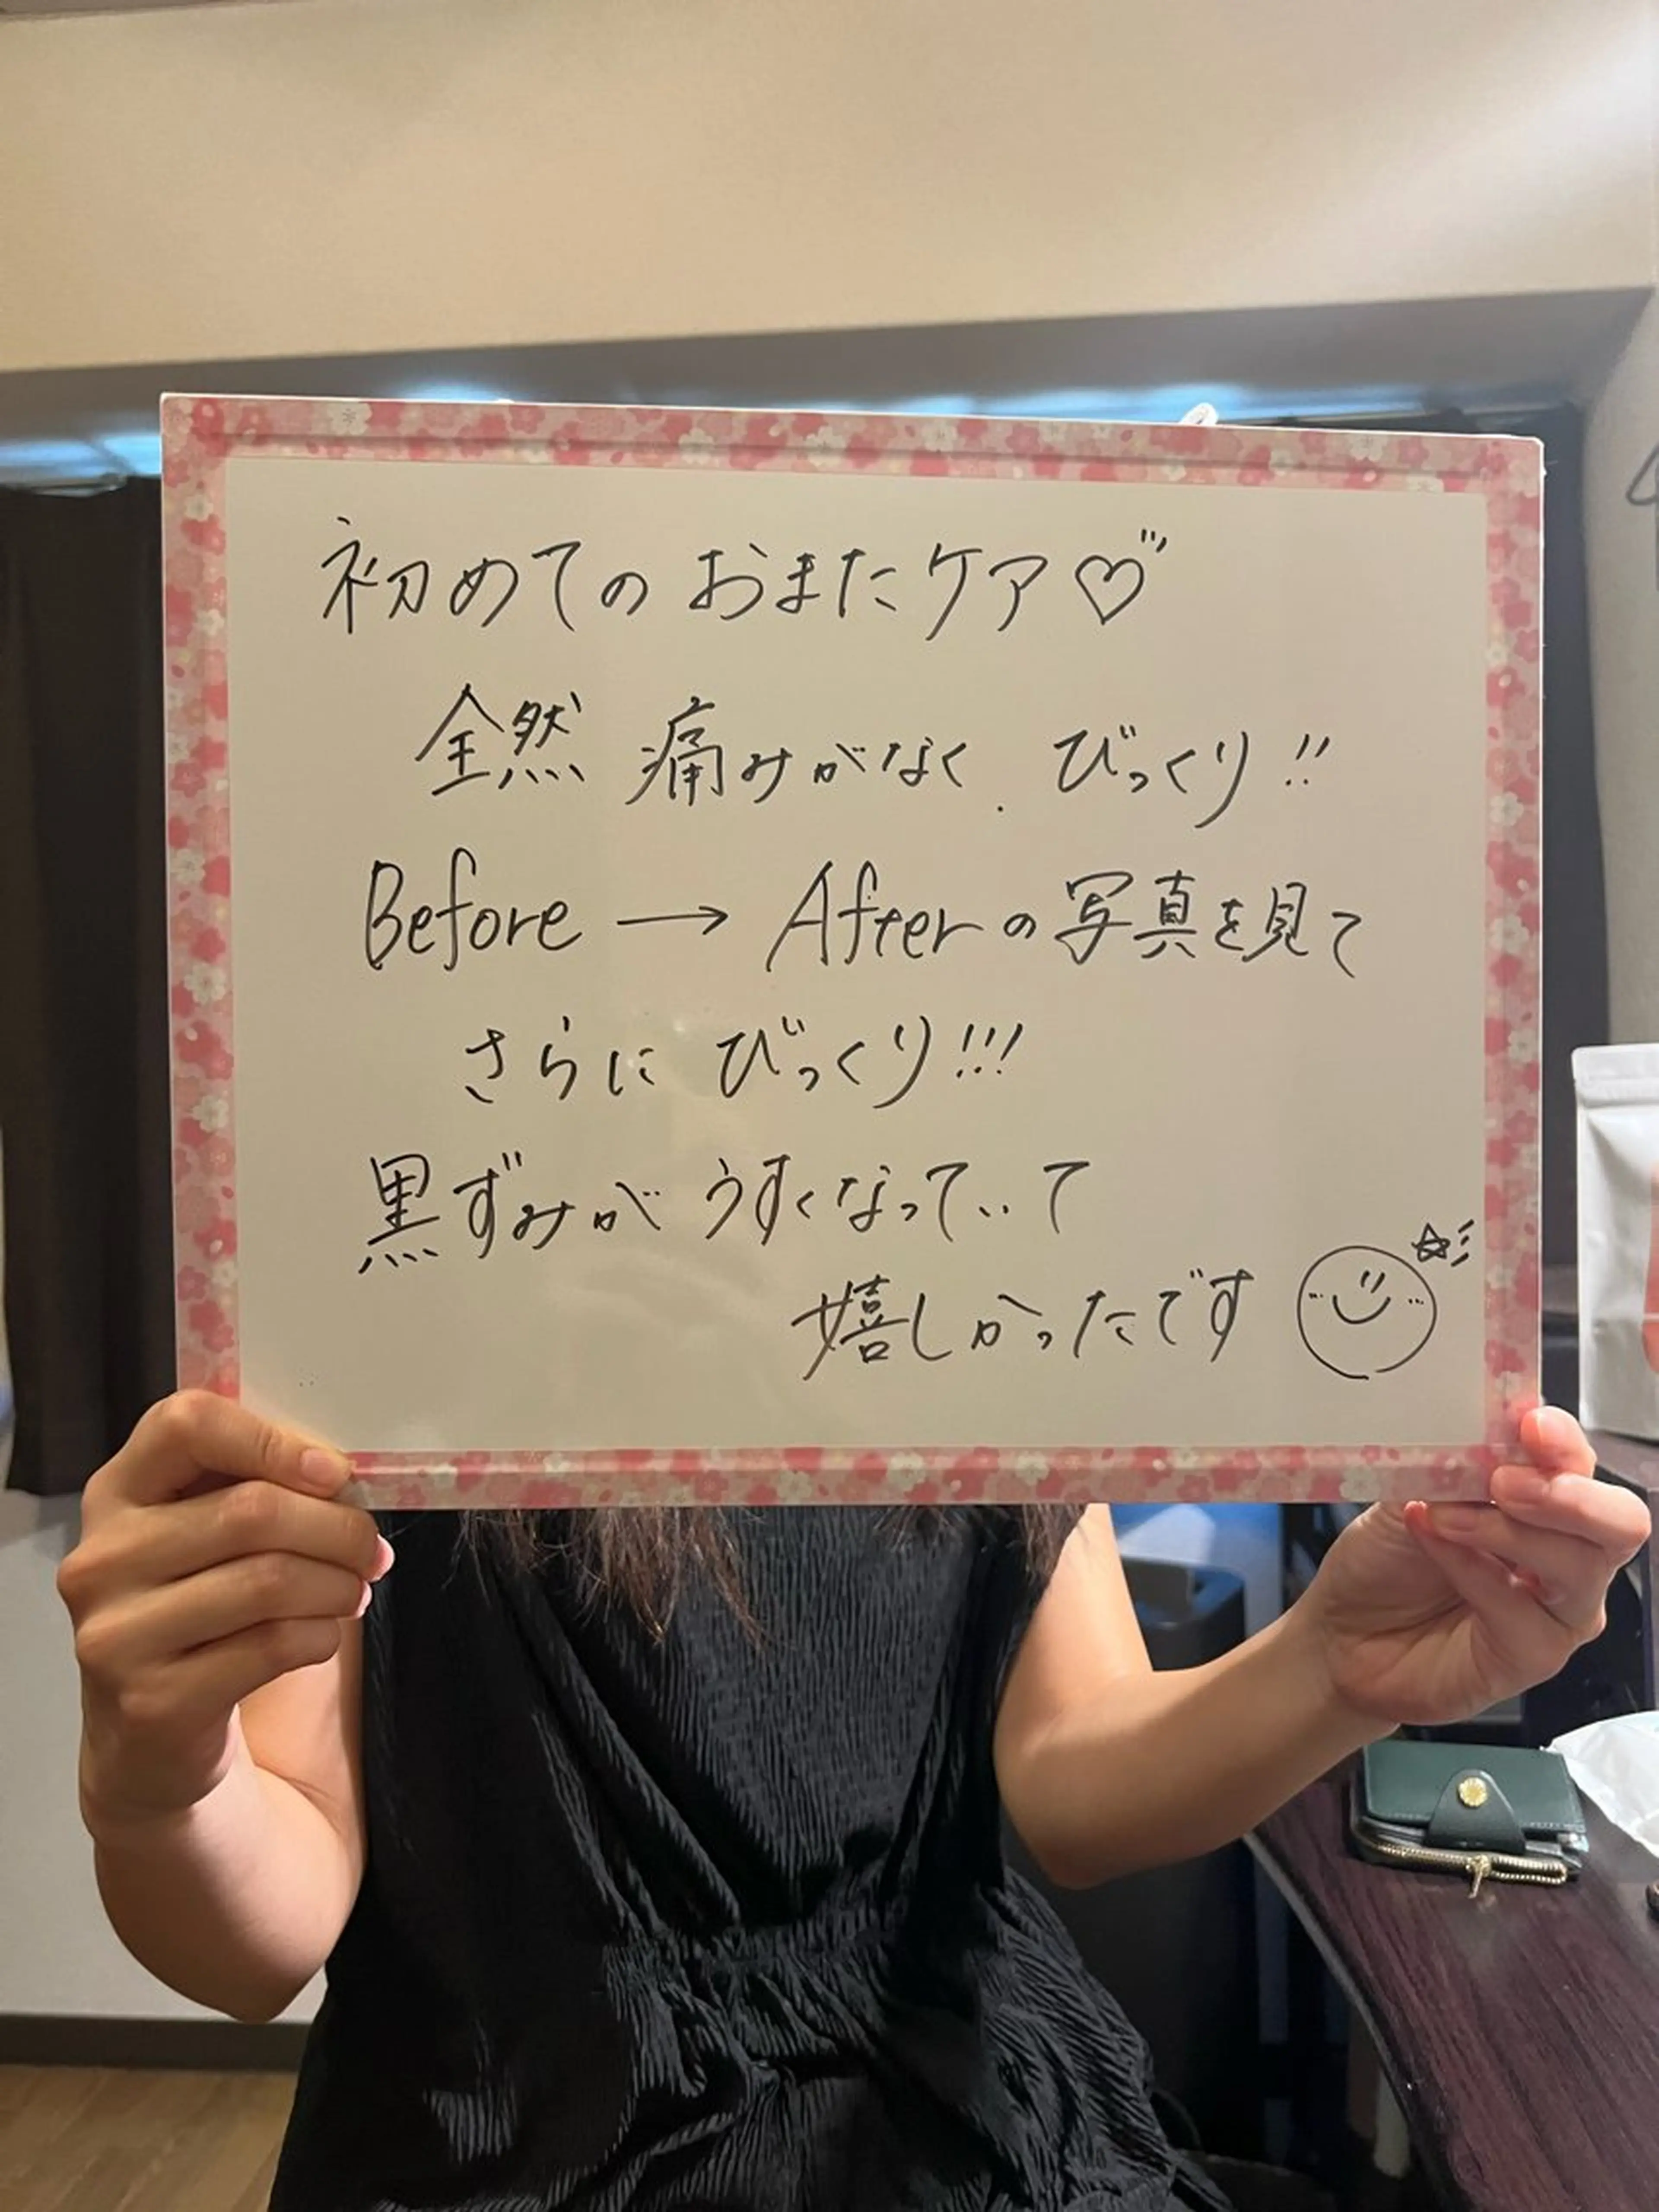 初めてのおまたケア♡
全然 痛みがなく、びっくり!!
Before → Afterの写真を見て
さらに びっくり!!!
黒ずみが うすくなっていて
嬉しかったです